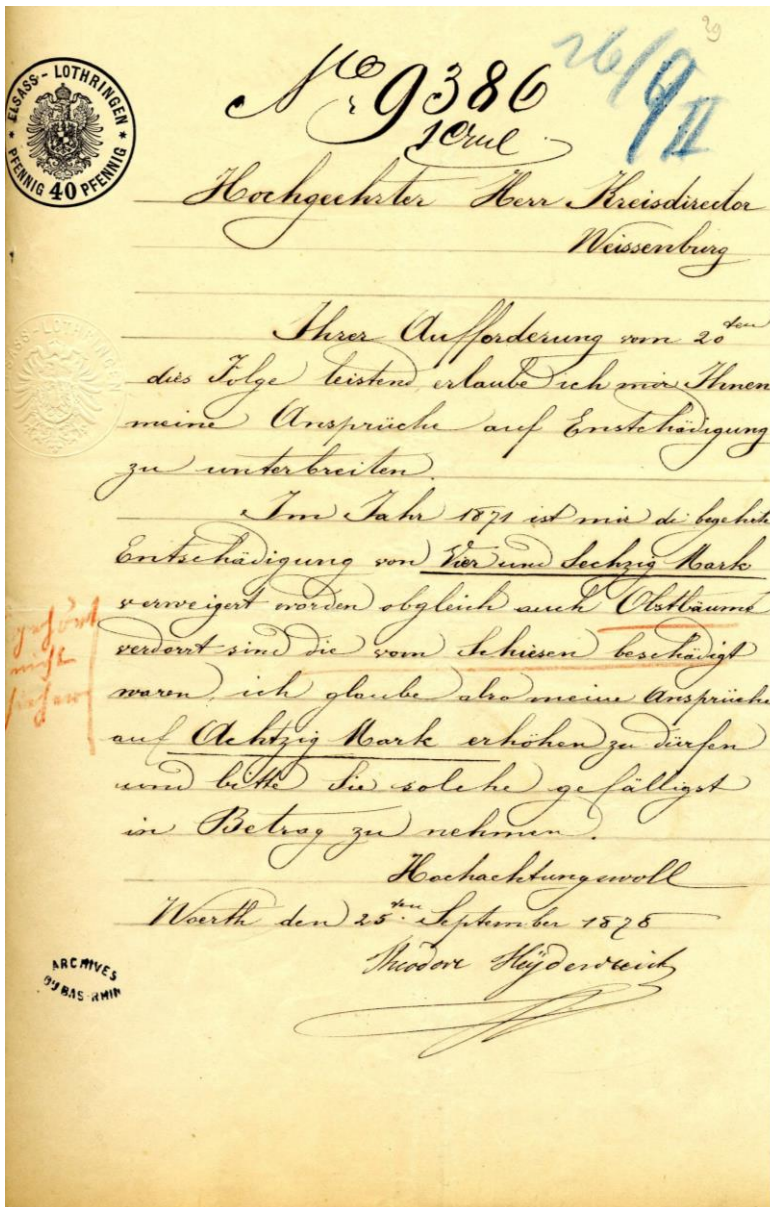 29
ELSASS - LOTHRINGEN
PFENNIG 40 PFENNIG
No 9386
26/9 II
Hochgeehrter Herr Kreisdirector
Weissenburg
ELSASS-LOTHRINGEN
Ihrer Aufforderung vom 20ten
dies Folge leistend erlaube ich mir Ihnen
meine Ansprüche auf Enstchädigung
zu unterbreiten.
Im Jahr 1871 ist mir die begehrte
Entschädigung von Vier und Sechzig Mark
verweigert worden obgleich auch Obstbäume
verdorrt sind die vom Schiesen beschädigt
waren, ich glaube also meine Ansprüche
auf Achtzig Mark erhöhen zu dürfen
und bitte Sie solche gefälligst
in Betrag zu nehmen.
gehört
nicht
Hochachtungsvoll
Woerth den 25ten September 1878
Theodore Heÿdenreich
ARCHIVES
DU BAS-RHIN